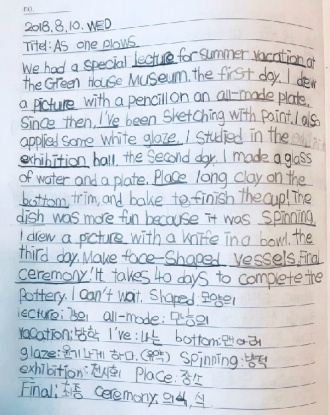 no.
2018.8.10. WED
Titel: As one plows
We had a special lecture for summer vacation at
the Green House Museum. the first day. I drew
a picture with a pencil on an all-made plate.
Since then, I've been sketching with paint. I also
applied some white glaze. I studied in the
exhibition hall. the Second day. I made a glass
of water and a plate. Place long clay on the
bottom, trim, and bake to finish the cup! The
dish was more fun because it was spinning
I drew a picture with a knife in a bowl. the
third day. Make face-shaped vessels. Final
ceremony! It takes 40 days to complete the
Pottery. I can't wait. Shaped 모양의
lecture: 강의 all-made: 만능의
vacation: 방학 I've: 나는 bottom: 맨 아래
glaze: 윤기나게 하다. (유약) Spinning: 방적
exhibition: 전시회 Place: 장소
Final: 최종 ceremony: 의식, 식